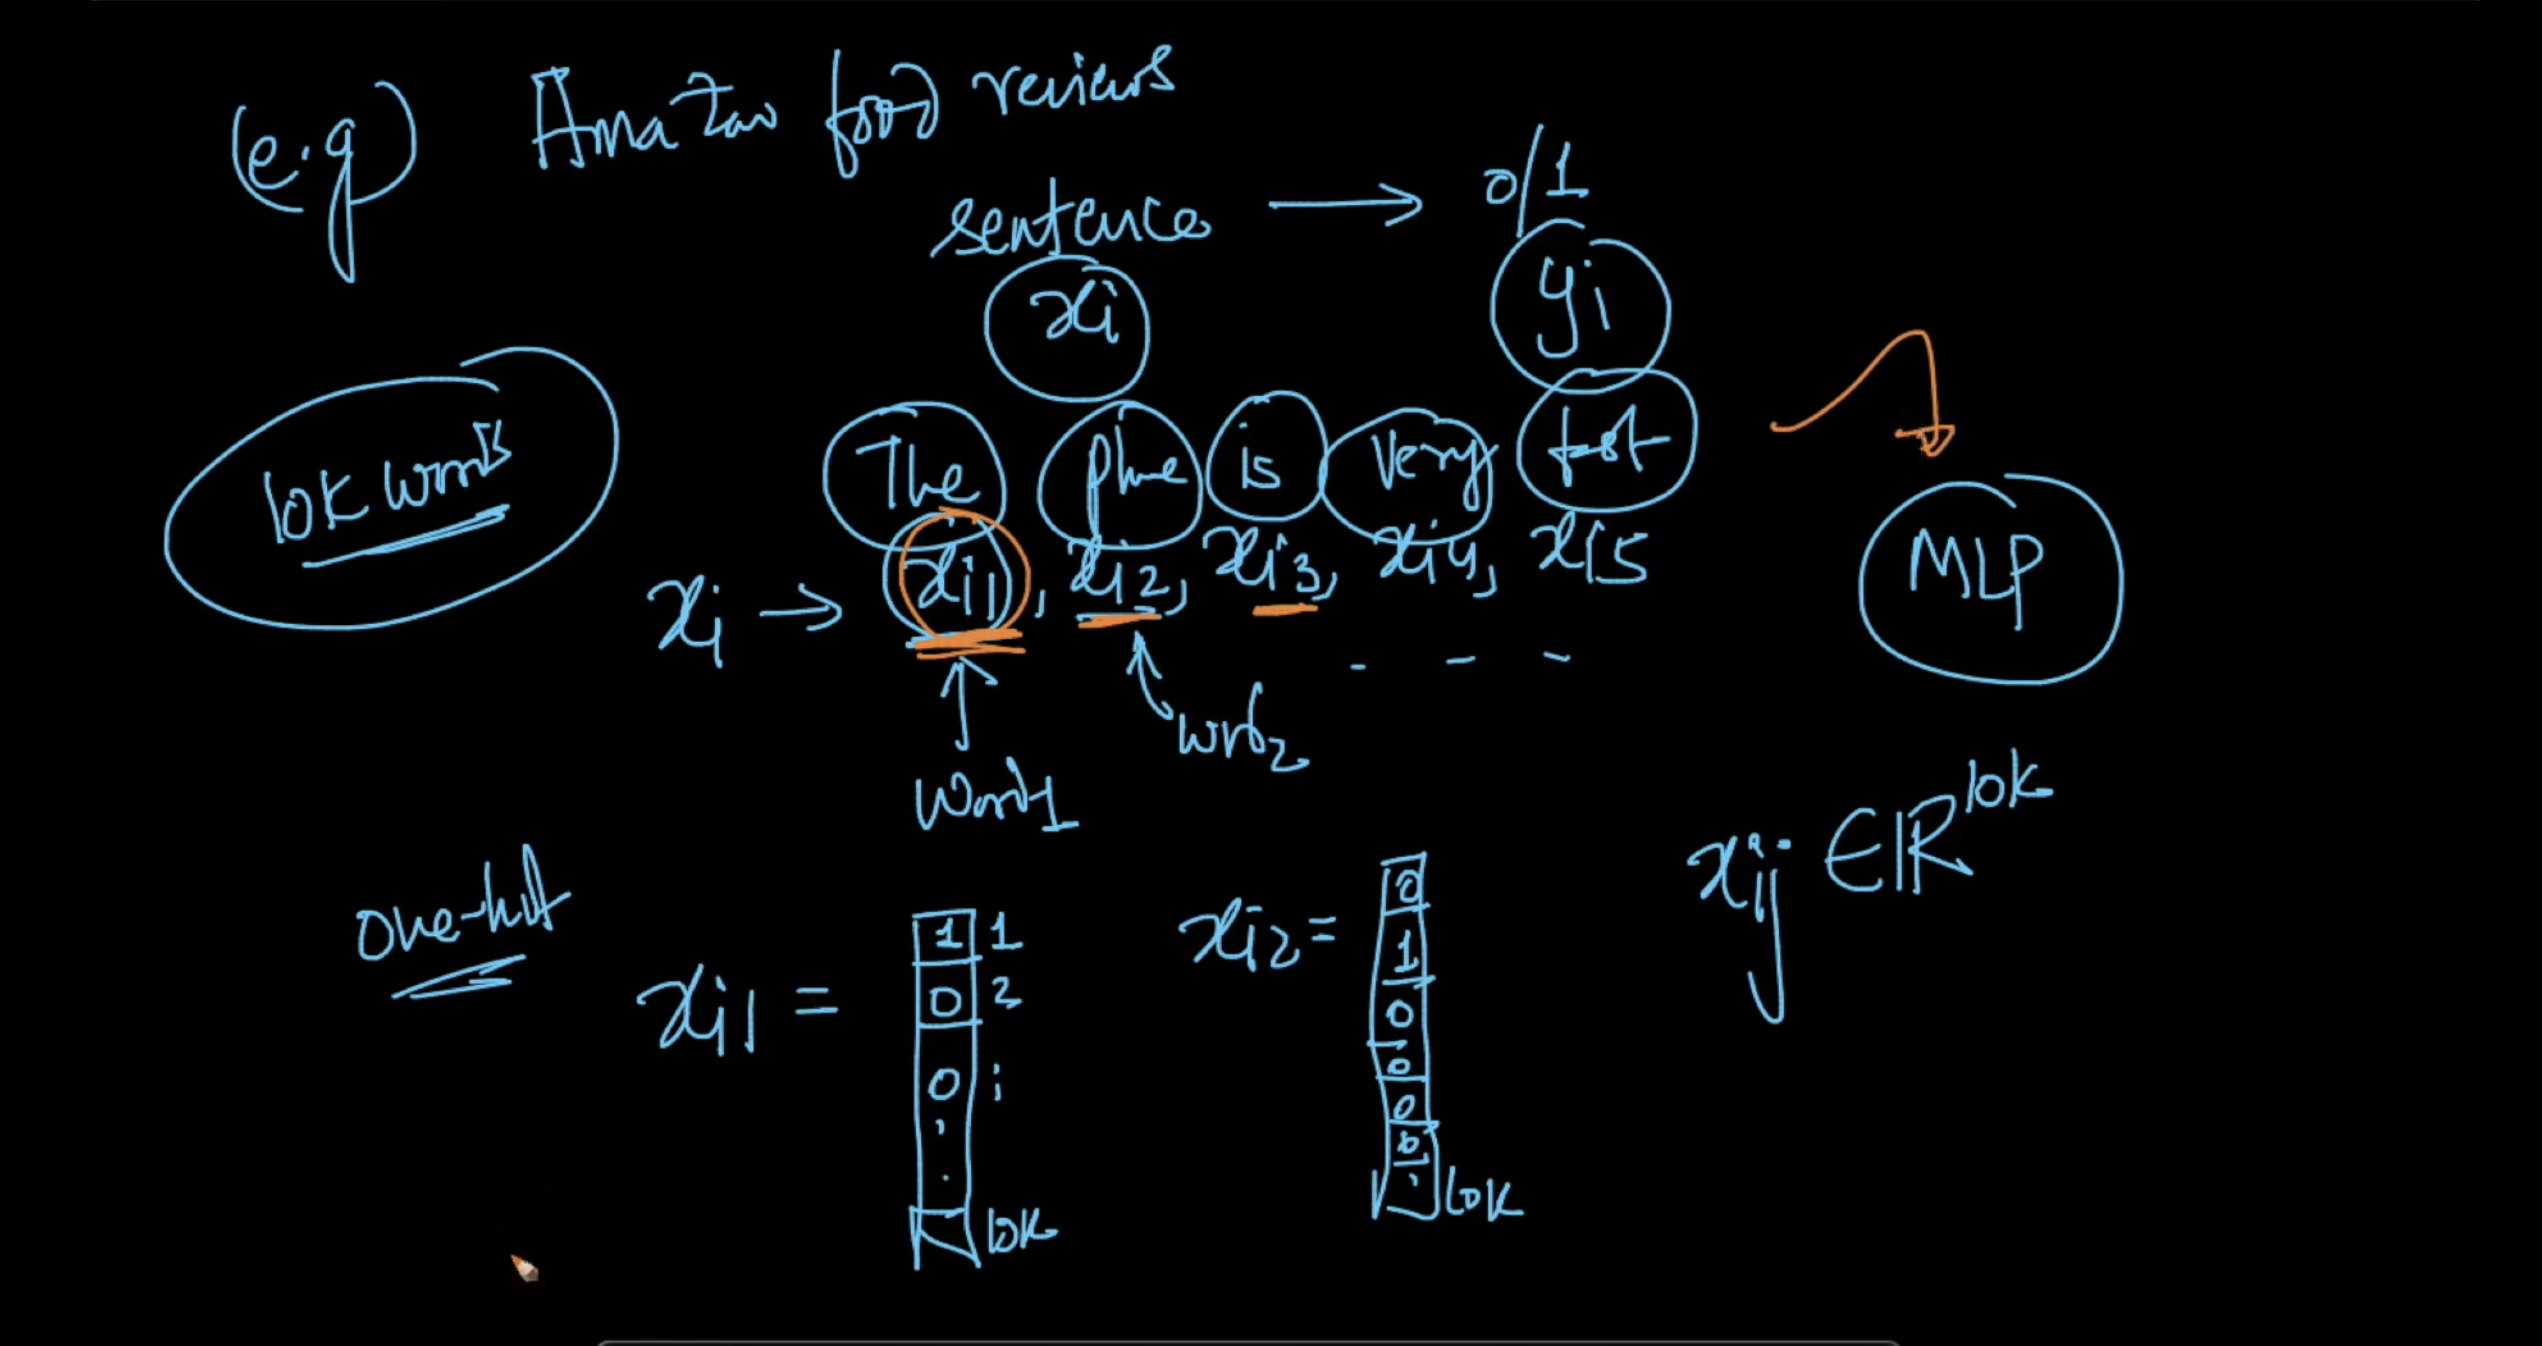 (e.g) Amazon food reviews
sentence → 0/1
xi yi
10k words
The phone is very fast
xi → xi1, xi2, xi3, xi4, xi5
MLP
- - -
word1
word2
xij ∈ ℝ^10k
one-hot
xi1 =
1 1
0 2
0 :
.
.
10k
xi2 =
0
1
0
0
0
0
.
10k